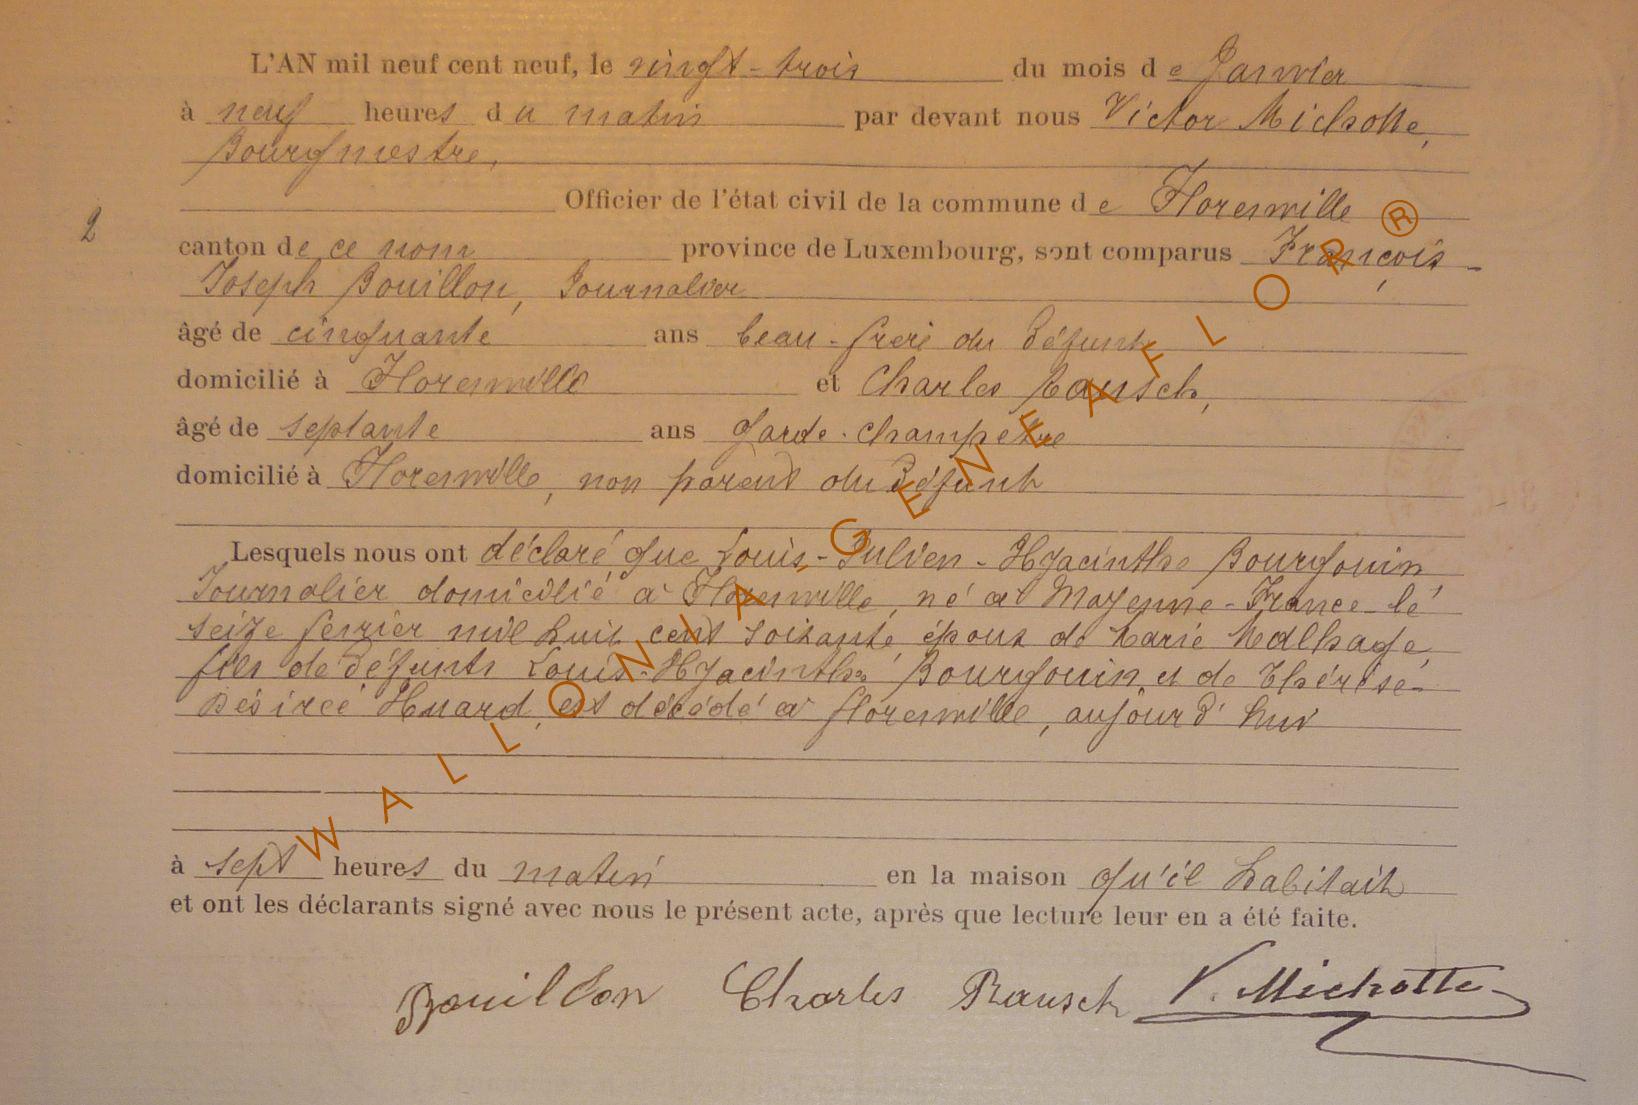 L'AN mil neuf cent neuf, le vingt-trois du mois de Janvier
à neuf heures du matin par devant nous Victor Michotte,
Bourgmestre,
Officier de l'état civil de la commune de Florenville
2
canton de ce nom province de Luxembourg, sont comparus François-
Joseph Bouillon, Journalier
âgé de cinquante ans beau-frère du défunt
domicilié à Florenville et Charles Rausch,
âgé de septante ans garde-champêtre
domicilié à Florenville, non parent du défunt
Lesquels nous ont déclaré que Louis-Julien-Hyacinthe Bourgouin,
Journalier domicilié à Florenville, né à Mayenne-France-le
seize février mil huit cent soixante, époux de Marie Malhage,
fils de défunts Louis-Hyacinthe Bourgouin et de Thérèse-
Désirée Huard, est décédé à Florenville, aujourd'hui
à sept heures du matin en la maison qu'il habitait
et ont les déclarants signé avec nous le présent acte, après que lecture leur en a été faite.
Bouillon Charles Rausch V. Michotte
WALLONIA-GENEAFLOR®